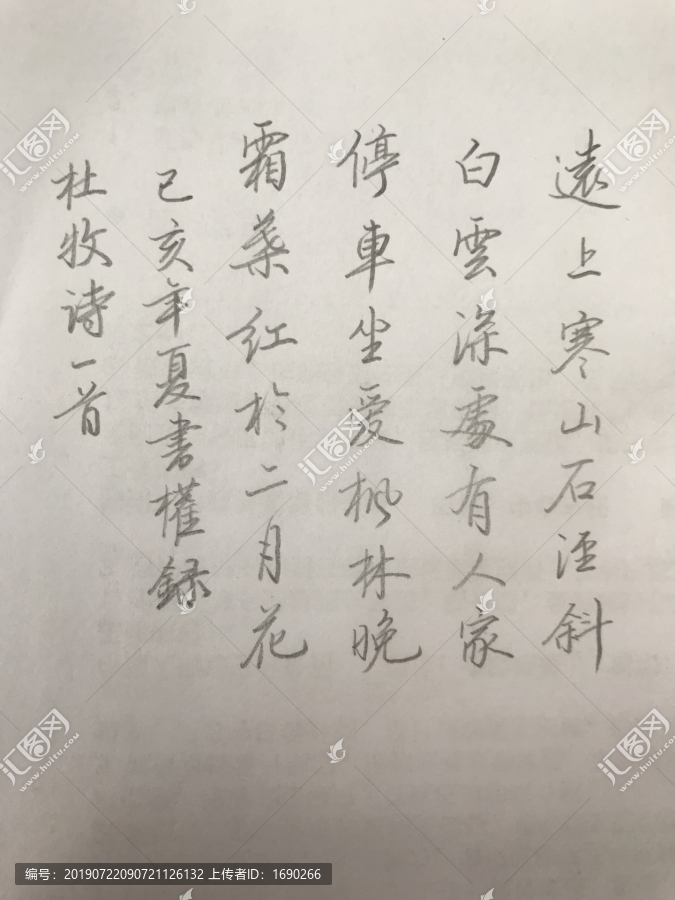 遠上寒山石泾斜
白雲深處有人家
停車坐爱枫林晚
霜葉红於二月花
己亥年夏書權録
杜牧诗一首
汇图网
www.huitu.com
编号：20190722090721126132 上传者ID：1690266